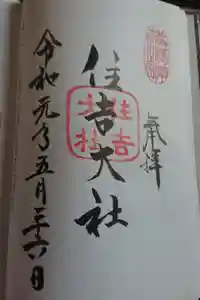 奉拝
住吉大社
住吉大社
令和元年五月二十六日